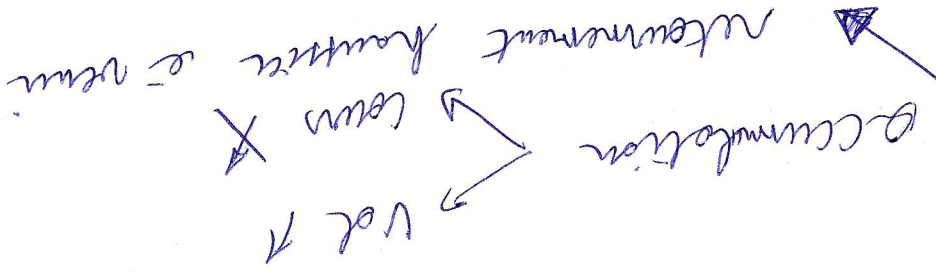 Vol ↗
accumulation
Cours
retournement haussier à venir.